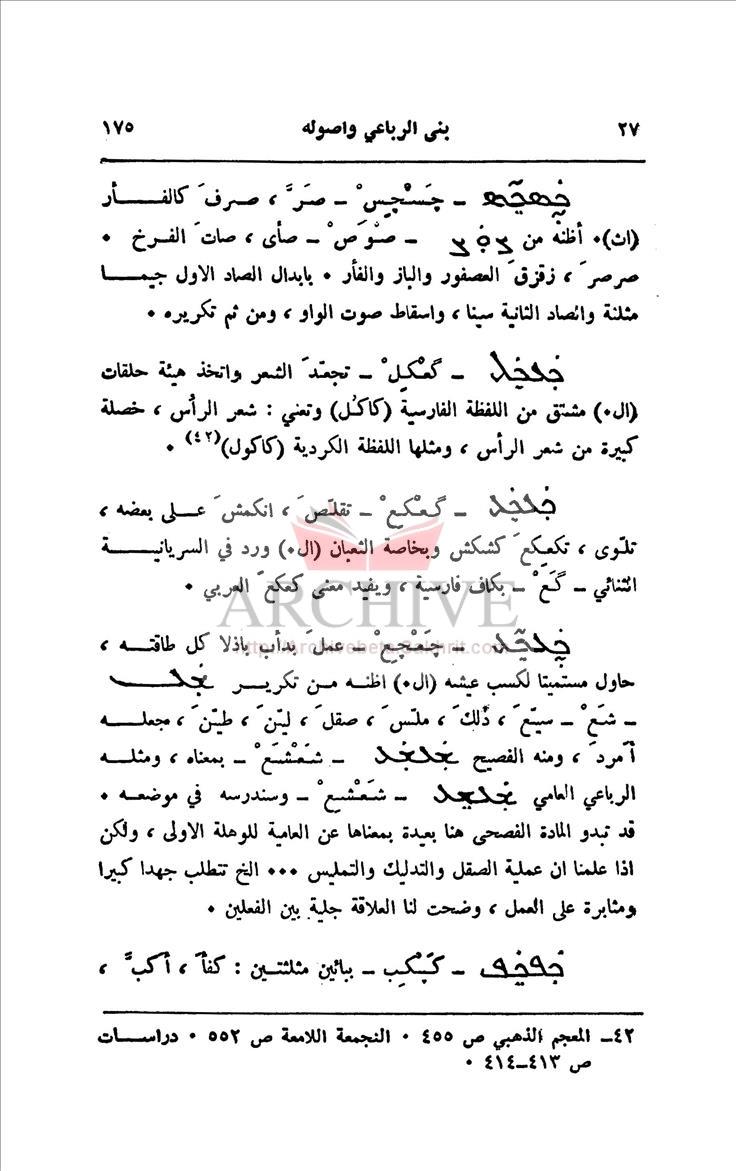 ٢٧ بنى الرباعي واصوله ١٧٥
ـ چَسْچِسْ ـ صَرَّ ، صرفَ كالفـــأر
(اث)٠ أظنه من ـ صْوَصْ ـ صأى ، صاتَ الفرخ ٠
صرصرَ ، زقزقَ العصفور والباز والفأر ٠ بابدال الصاد الاول جيمـــا
مثلثة والصاد الثانية سينا ، واسقاط صوت الواو ، ومن ثم تكريره ٠
ـ گَعْكِلْ ـ تجعّدَ الشعر واتخذ هيئة حلقات
(ال٠) مشتق من اللفظة الفارسية (كاكُل) وتعني : شعر الرأس ، خصلة
كبيرة من شعر الرأس ، ومثلها اللفظة الكردية (كاكول)(٤٢) ٠
ـ گَعْكِعْ ـ تقلّصَ ، انكمشَ علـى بعضه ،
تلوّى ، تكعكعَ كشكش وبخاصة الثعبان (ال٠) ورد في السريانيـــة
الثنائي ـ گَعْ ـ بكاف فارسية ، ويفيد معنى كعكعَ العربي ٠
ARCHIVE
http://Archivebeta.Sakhrit.com
ـ چَعْچِعْ ـ عملَ بدأب باذلا كل طاقتـــه ،
حاول مستميتا لكسب عيشه (ال٠) اظنـه مـن تكريـر
ـ شَعْ ـ سيّعَ ، ذلكَ ، ملّسَ ، صقلَ ، ليّنَ ، طيّنَ ، مجعلـــه
أمردَ ، ومنه الفصيح ـ شَعْشَعْ ـ بمعناه ، ومثلـــه
الرباعي العامي ـ شَعْشِعْ ـ وسندرسه في موضعـه ٠
قد تبدو المادة الفصحى هنا بعيدة بمعناها عن العامية للوهلة الاولى ، ولكن
اذا علمنا ان عملية الصقل والتدليك والتمليس ٠٠٠ الخ تتطلب جهدا كبيرا
ومثابرة على العمل ، وضحت لنا العلاقة جلية بين الفعلين ٠
ـ ببائين مثلثتـين : كفأ ، أكبَّ ،
٤٢ـ المعجم الذهبي ص ٤٥٥ ٠ النجمعة اللامعة ص ٥٥٢ ٠ دراســات
ص ٤١٣ـ٤١٤ ٠